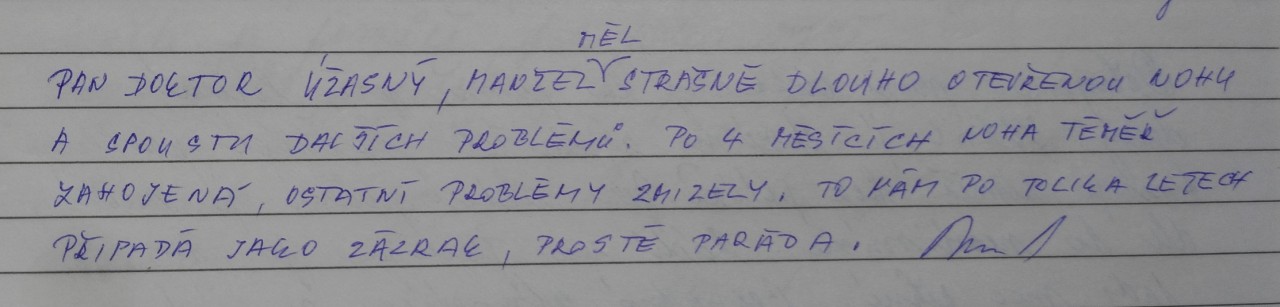 PAN DOKTOR ÚŽASNÝ, MANŽEL MĚL STRAŠNĚ DLOUHO OTEVŘENOU NOHU
A SPOUSTU DALŠÍCH PROBLÉMŮ. PO 4 MĚSÍCÍCH NOHA TÉMĚŘ
ZAHOJENÁ, OSTATNÍ PROBLÉMY ZMIZELY. TO NÁM PO TOLIKA LETECH
PŘIPADÁ JAKO ZÁZRAK, PROSTĚ PARÁDA.